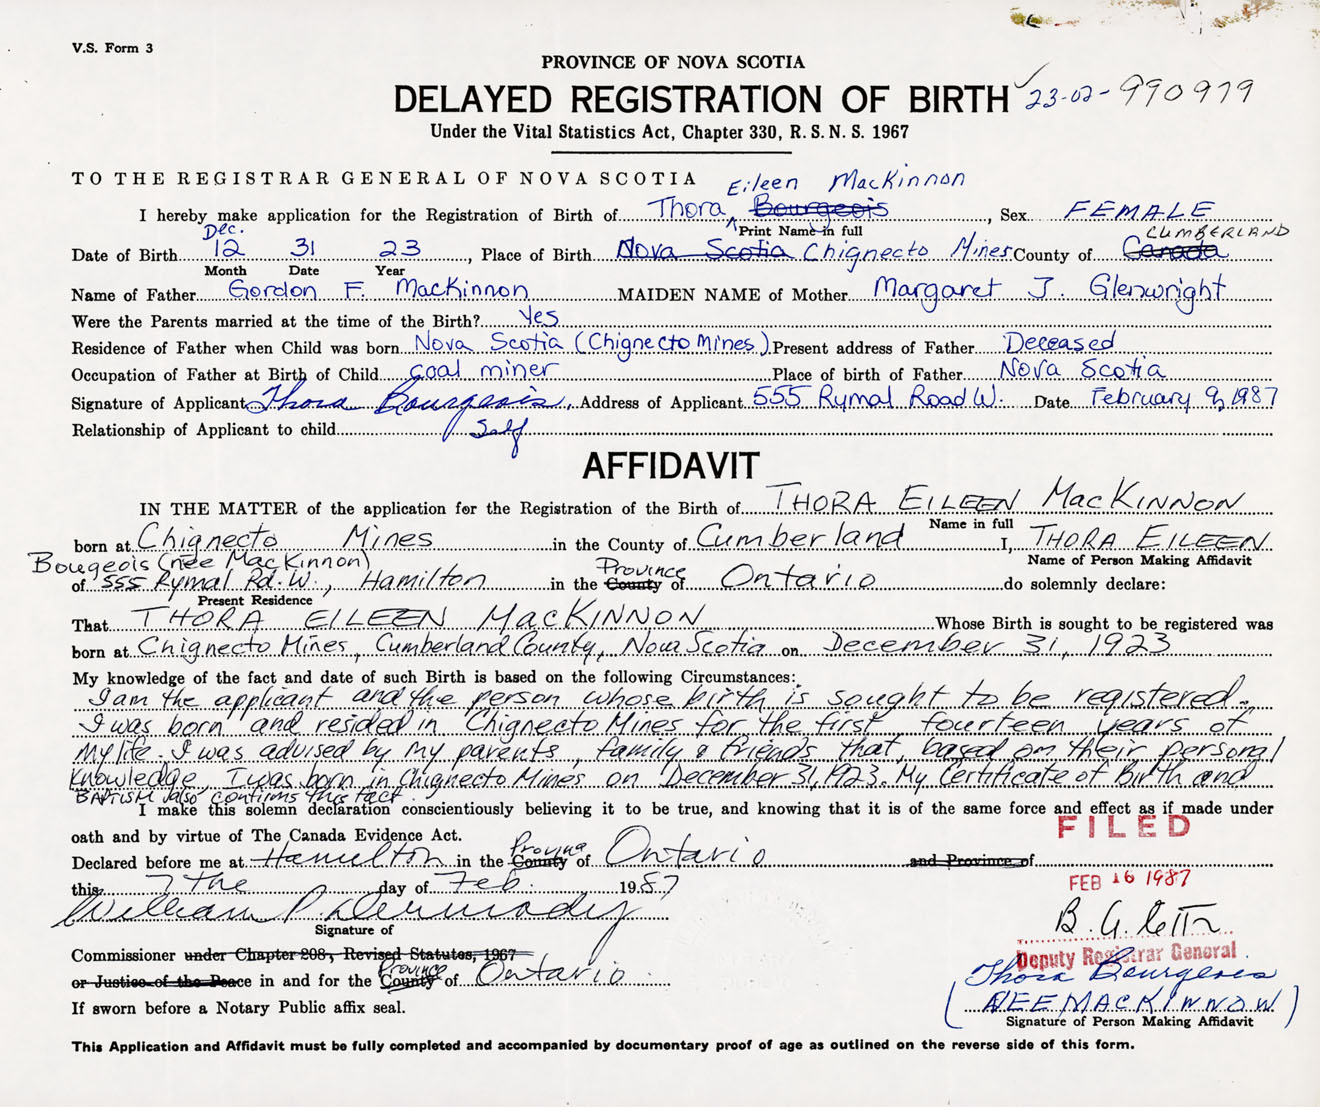 V.S. Form 3
PROVINCE OF NOVA SCOTIA
DELAYED REGISTRATION OF BIRTH 23-02-990979
Under the Vital Statistics Act, Chapter 330, R.S.N.S. 1967
TO THE REGISTRAR GENERAL OF NOVA SCOTIA
Eileen MacKinnon
I hereby make application for the Registration of Birth of Thora Bourgeois, Sex FEMALE
Print Name in full
Dec. CUMBERLAND
Date of Birth 12 31 23, Place of Birth Nova Scotia Chignecto Mines County of Canada
Month Date Year
Name of Father Gordon F. MacKinnon MAIDEN NAME of Mother Margaret J. Glenwright
Were the Parents married at the time of the Birth? Yes
Residence of Father when Child was born Nova Scotia (Chignecto Mines) Present address of Father Deceased
Occupation of Father at Birth of Child coal miner Place of birth of Father Nova Scotia
Signature of Applicant Thora Bourgeois, Address of Applicant 555 Rymal Road W. Date February 9, 1987
Relationship of Applicant to child Self
AFFIDAVIT
IN THE MATTER of the application for the Registration of the Birth of THORA EILEEN MacKINNON
Name in full
born at Chignecto Mines in the County of Cumberland I, THORA EILEEN
Name of Person Making Affidavit
Bougeois (née MacKinnon)
Province
of 555 Rymal Rd. W., Hamilton in the County of Ontario do solemnly declare:
Present Residence
That THORA EILEEN MacKINNON Whose Birth is sought to be registered was
born at Chignecto Mines, Cumberland County, Nova Scotia on December 31, 1923
My knowledge of the fact and date of such Birth is based on the following Circumstances:
I am the applicant and the person whose birth is sought to be registered.
I was born and resided in Chignecto Mines for the first fourteen years of
my life. I was advised by my parents, family & friends that, based on their personal
knowledge, I was born in Chignecto Mines on December 31, 1923. My Certificate of Birth and
BAPTISM also confirms this fact.
I make this solemn declaration conscientiously believing it to be true, and knowing that it is of the same force and effect as if made under
oath and by virtue of The Canada Evidence Act.
FILED
Province
Declared before me at Hamilton in the County of Ontario and Province of
this 7 the day of Feb. 1987
FEB 16 1987
William P. Dermody
Signature of
B. G.
Commissioner under Chapter 208, Revised Statutes, 1967
Deputy Registrar General
Province
or Justice of the Peace in and for the County of Ontario
Thora Bourgeois
(NEE MACKINNON)
If sworn before a Notary Public affix seal.
Signature of Person Making Affidavit
This Application and Affidavit must be fully completed and accompanied by documentary proof of age as outlined on the reverse side of this form.